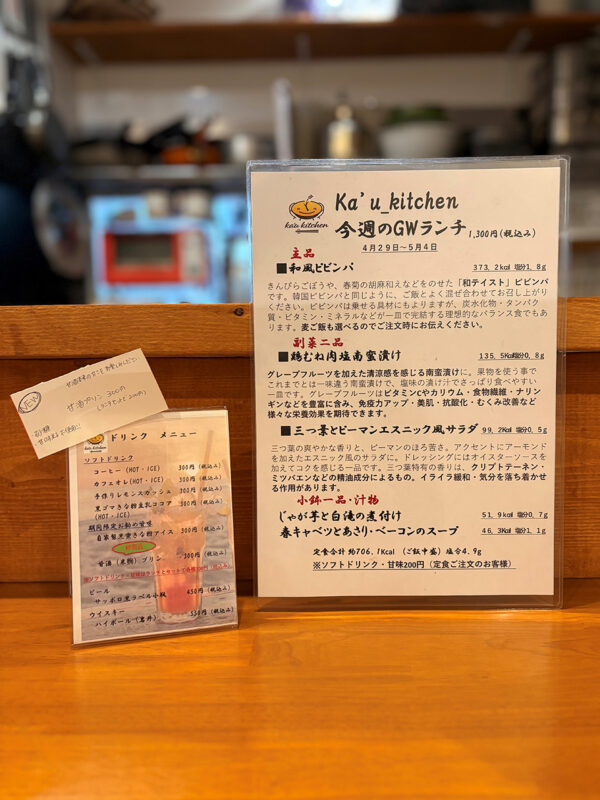 ka'u kitchen
Ka'u_kitchen
今週のGWランチ 1,300円(税込み)
4月29日〜5月4日
主品
■和風ビビンパ 373.2kcal 塩分1.8g
きんぴらごぼうや、春菊の胡麻和えなどをのせた「和テイスト」ビビンパ
です。韓国ビビンパと同じように、ご飯とよく混ぜ合わせてお召し上がり
ください。ビビンパは乗せる具材にもよりますが、炭水化物・タンパク
質・ビタミン・ミネラルなどが一皿で完結する理想的なバランス食でもあ
ります。麦ご飯も選べるのでご注文時にお伝えください。
副菜二品
■鶏むね肉塩南蛮漬け 135.5kcal塩分0.8g
グレープフルーツを加えた清涼感を感じる南蛮漬けに。果物を使う事で
これまでとは一味違う南蛮漬けで、塩味の漬け汁でさっぱり食べやすい
一皿です。グレープフルーツはビタミンCやカリウム・食物繊維・ナリン
ギンなどを豊富に含み、免疫力アップ・美肌・抗酸化・むくみ改善など
様々な栄養効果を期待できます。
■三つ葉とピーマンエスニック風サラダ 99.2kcal 塩分0.5g
三つ葉の爽やかな香りと、ピーマンのほろ苦さ。アクセントにアーモンド
を加えたエスニック風のサラダに。ドレッシングにはオイスターソースを
加えてコクを感じる一品です。三つ葉特有の香りは、クリプトテーネン・
ミツバエンなどの精油成分によるもの。イライラ緩和・気分を落ち着かせ
る作用があります。
小鉢一品・汁物
じゃが芋と白滝の煮付け 51.9kcal 塩分0.7g
春キャベツとあさり・ベーコンのスープ 46.3kcal 塩分1.1g
定食合計 約706.1Kcal (ご飯中盛) 塩分4.9g
※ソフトドリンク・甘味200円(定食ご注文のお客様)
甘酒プリン 300円
ka'u kitchen
ドリンク メニュー
ソフトドリンク
コーヒー(HOT・ICE) 300円(税込み)
カフェオレ(HOT・ICE) 300円(税込み)
手作りレモンスカッシュ 300円(税込み)
黒ゴマきな粉豆乳ココア 300円(税込み)
(HOT・ICE)
期間限定お勧め甘味
自家製黒蜜きな粉アイス 300円(税込み)
甘酒(米麹)プリン 300円(税込み)
※ソフトドリンク・甘味はランチとセットで各種200円(税込み)
ビール
サッポロ黒ラベル小瓶 450円(税込み)
ウイスキー
ハイボール(富井) 550円(税込み)